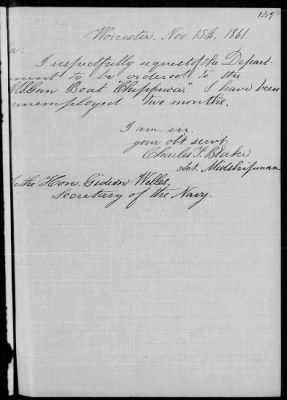 149
Worcester, Nov 15th, 1861
I respectfully request of the Depart
ment to be ordered to the
Gun Boat "Chippewa" I have been
unemployed two months.
I am sir
your obt servt.
Charles F. Blake
Act. Midshipman
the Hon. Gideon Welles,
Secretary of the Navy.